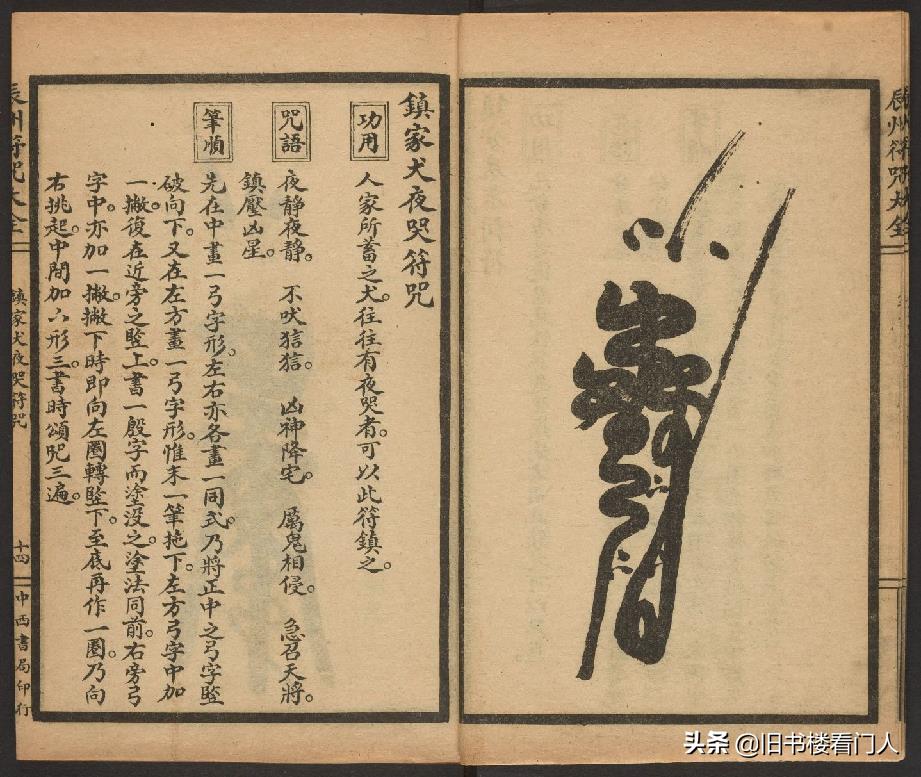 鎮家犬夜哭符咒
功用
人家所蓄之犬。往往有夜哭者。可以此符鎮之。
咒語
夜静夜静。不吠狺狺。凶神降宅。厲鬼相侵。急召天將。
鎮壓凶星。
筆順
先在中畫一弓字形。左右亦各畫一同式。乃將正中之弓字豎
破向下。又在左方畫一弓字形。惟末一筆拖下。左方弓字中加
一撇。復在近旁之豎上。書一殷字而塗没之。塗法同前。右旁弓
字中。亦加一撇。撇下時即向左圈轉豎下。至底再作一圈。乃向
右挑起。中間加厶形三。書時頌咒三遍。
辰州符咒大全
鎮家犬夜哭符咒
十四
中西書局印行
辰州符咒大全
头条 @旧书楼看门人